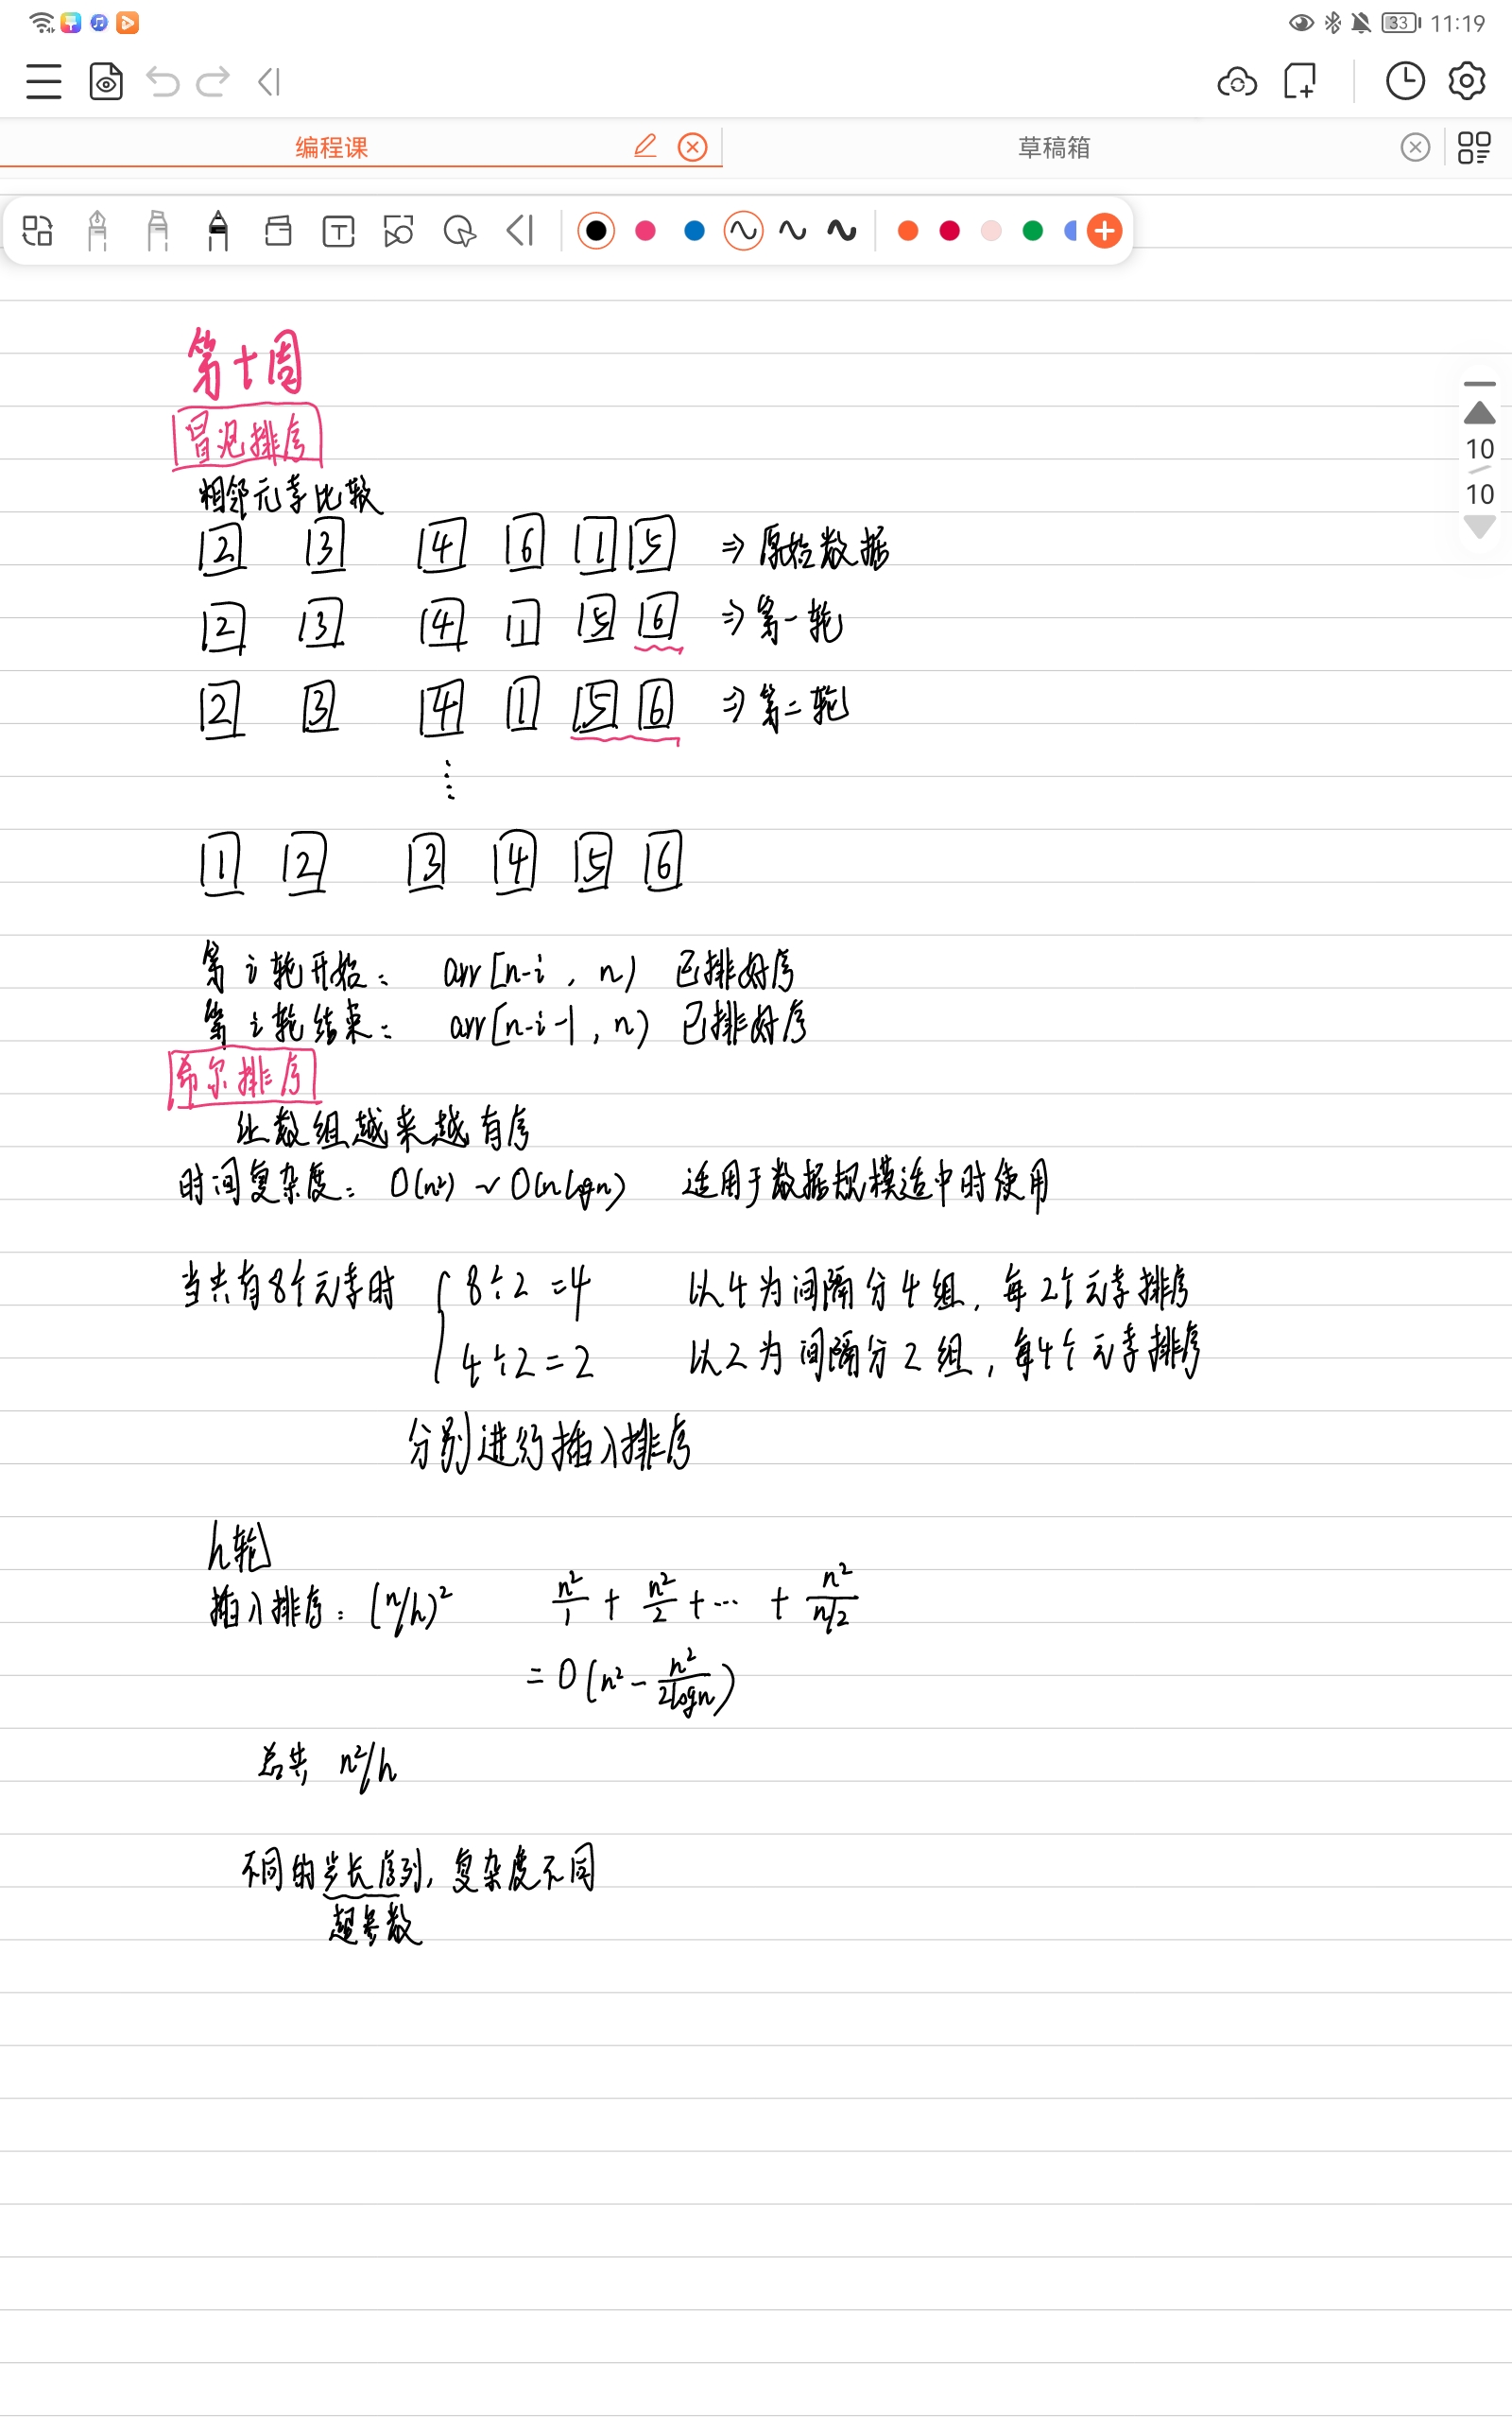 33 11:19
编程课 草稿箱
10
10
第十周
冒泡排序
相邻元素比较
2 3 4 6 1 5 ⇒ 原始数据
2 3 4 1 5 6 ⇒ 第一轮
2 3 4 1 5 6 ⇒ 第二轮
⋮
1 2 3 4 5 6
第 i 轮开始: arr[n-i , n) 已排好序
第 i 轮结束: arr[n-i-1 , n) 已排好序
希尔排序
让数组越来越有序
时间复杂度: O(n²) ~ O(nlogn) 适用于数据规模适中时使用
当共有8个元素时 { 8÷2=4 以4为间隔分4组, 每2个元素排序
4÷2=2 以2为间隔分2组, 每4个元素排序
分别进行插入排序
h轮
插入排序: (n/h)² n²/1 + n²/2 + … + n²/(n/2)
= O(n² - n²/2logn)
总共 n²/h
不同的步长序列, 复杂度不同
超参数